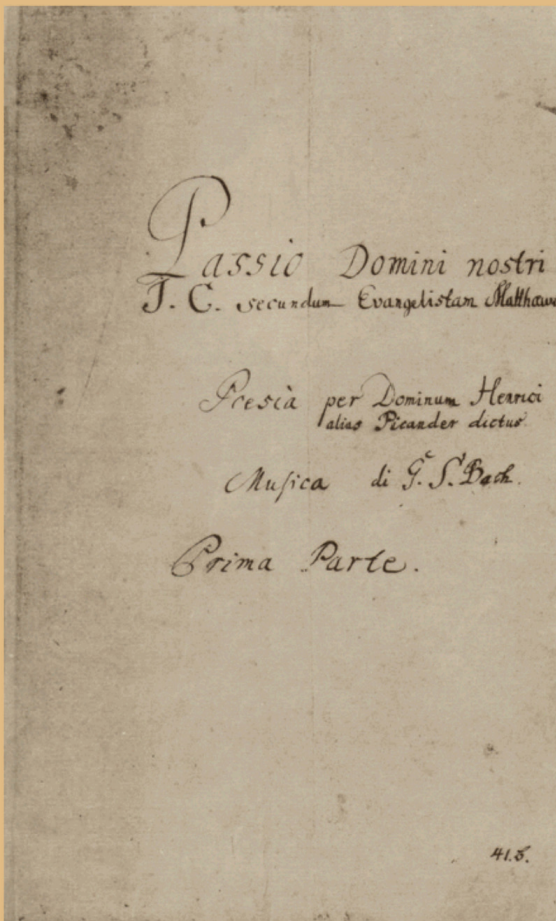 Passio Domini nostri
J. C. secundum Evangelistam Matthaeu
Poesia per Dominum Henrici
alias Picander dictus
Musica di G. S. Bach.
Prima Parte.